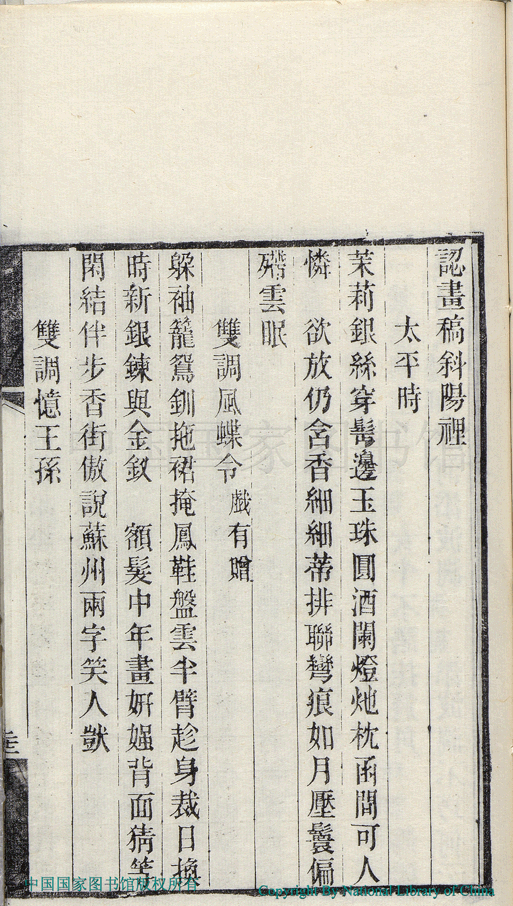 認畫稿斜陽裡
太平時
茉莉銀絲穿髩邊玉珠圓酒闌燈灺枕函間可人
憐　欲放仍含香細細蒂排聯彎痕如月壓鬟偏
殢雲眠
雙調風蝶令戲有贈
躲袖籠鴛釧拖裙掩鳳鞋盤雲半臂趁身裁日換
時新銀鍊與金釵　額髮中年畫妍媸背面猜笑
閑結伴步香街傲說蘇州兩字笑人獃
雙調憶王孫
中国国家图书馆
中国国家图书馆版权所有
Copyright By National Library of China